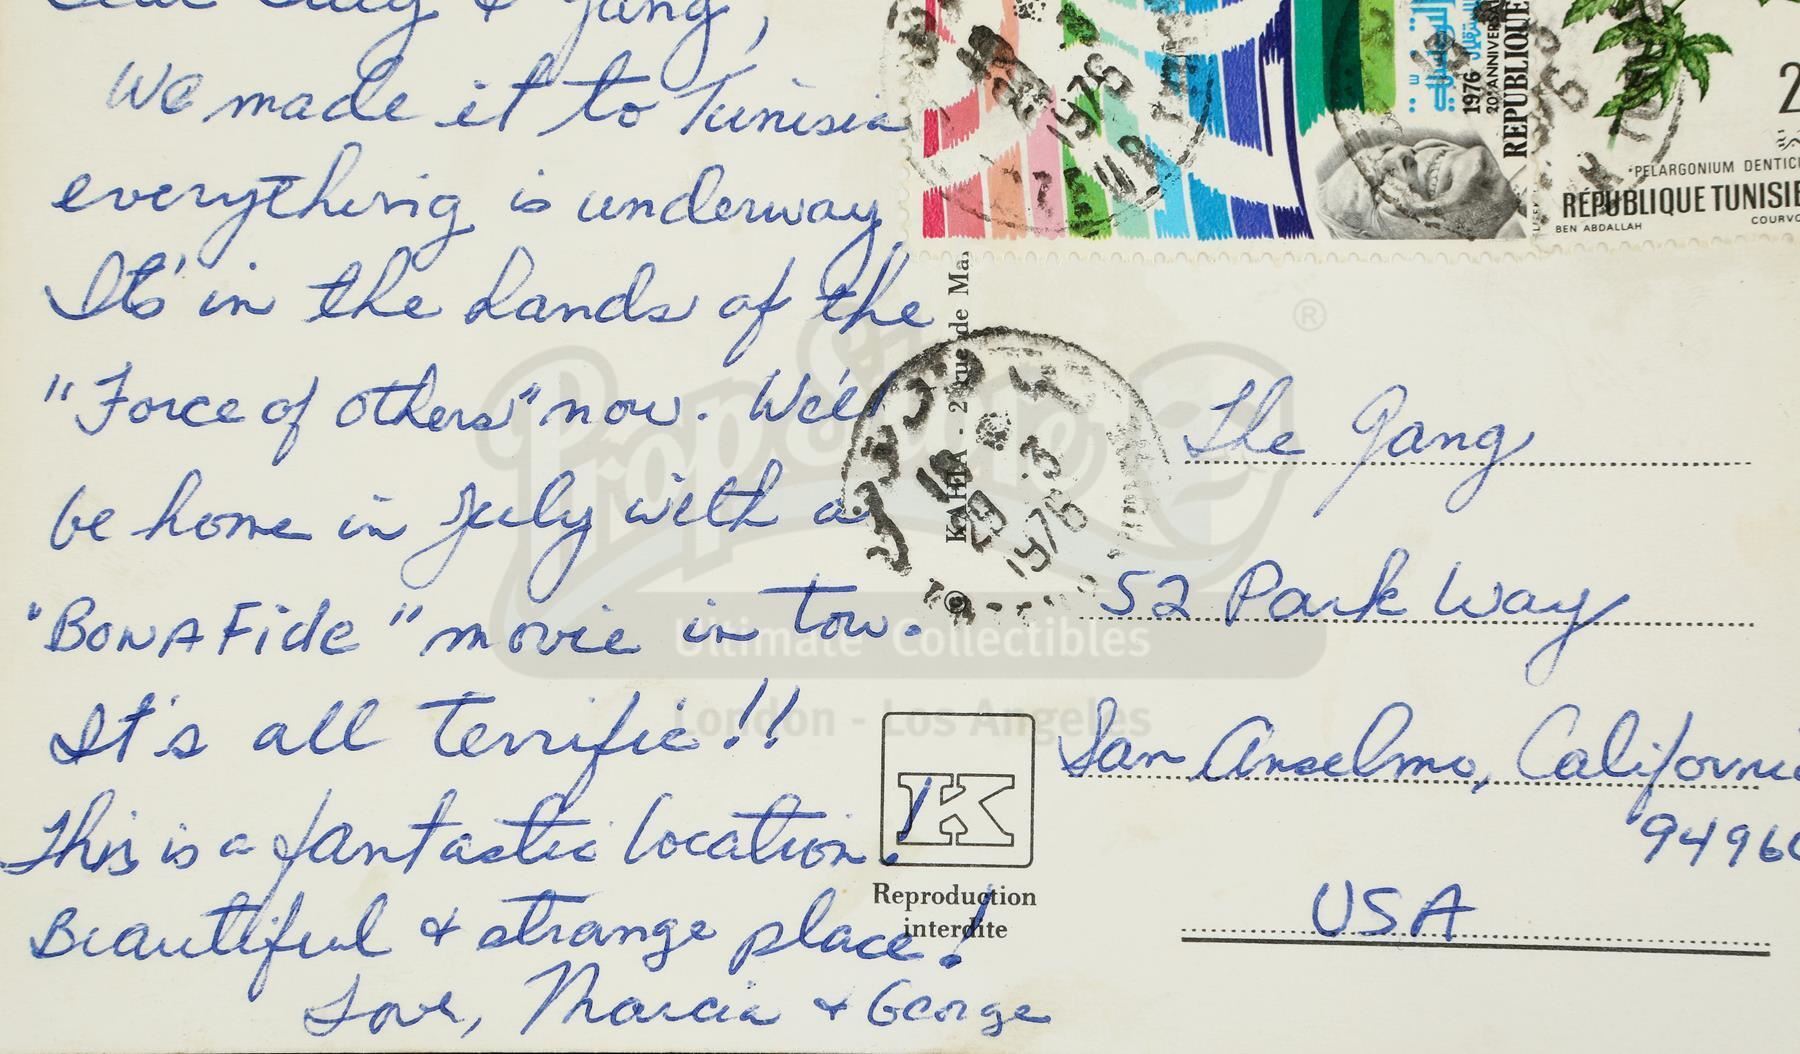 & Gang,
We made it to Tunisia
everything is underway
It's in the hands of the
"Force of others" now. We'll
be home in July with a
"BONA Fide" movie in tow.
It's all terrific!!
This is a fantastic location!
Beautiful & strange place!
Love, Marcia & George
1976
20e ANNIVERSA
REPUBLIQUE
2
PELARGONIUM DENTIC
RÉPUBLIQUE TUNISIE
BEN ABDALLAH
COURVO
1976
KAHIA - 2 rue de Ma
29 -3
1976
The Gang
52 Park Way
San Anselmo, California
94960
USA
K
Reproduction
interdite
PropStore
®
Ultimate Collectibles
London - Los Angeles